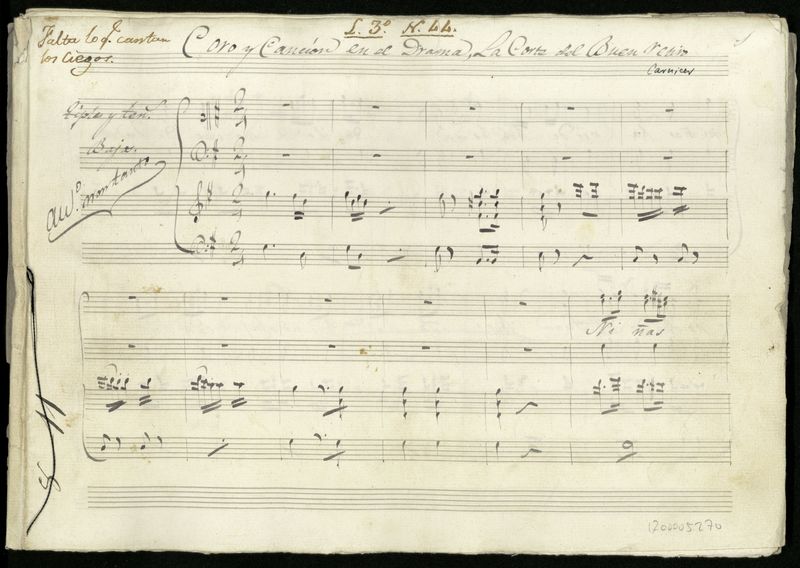 L. 3º N. 44.
Falta lo q.e cantan
los Ciegos.
Coro y Canción en el Drama, La Corte del Buen Retiro
Carnicer
tiples y ten.s
Bajo.
And.o
Ni ñas
1200005270